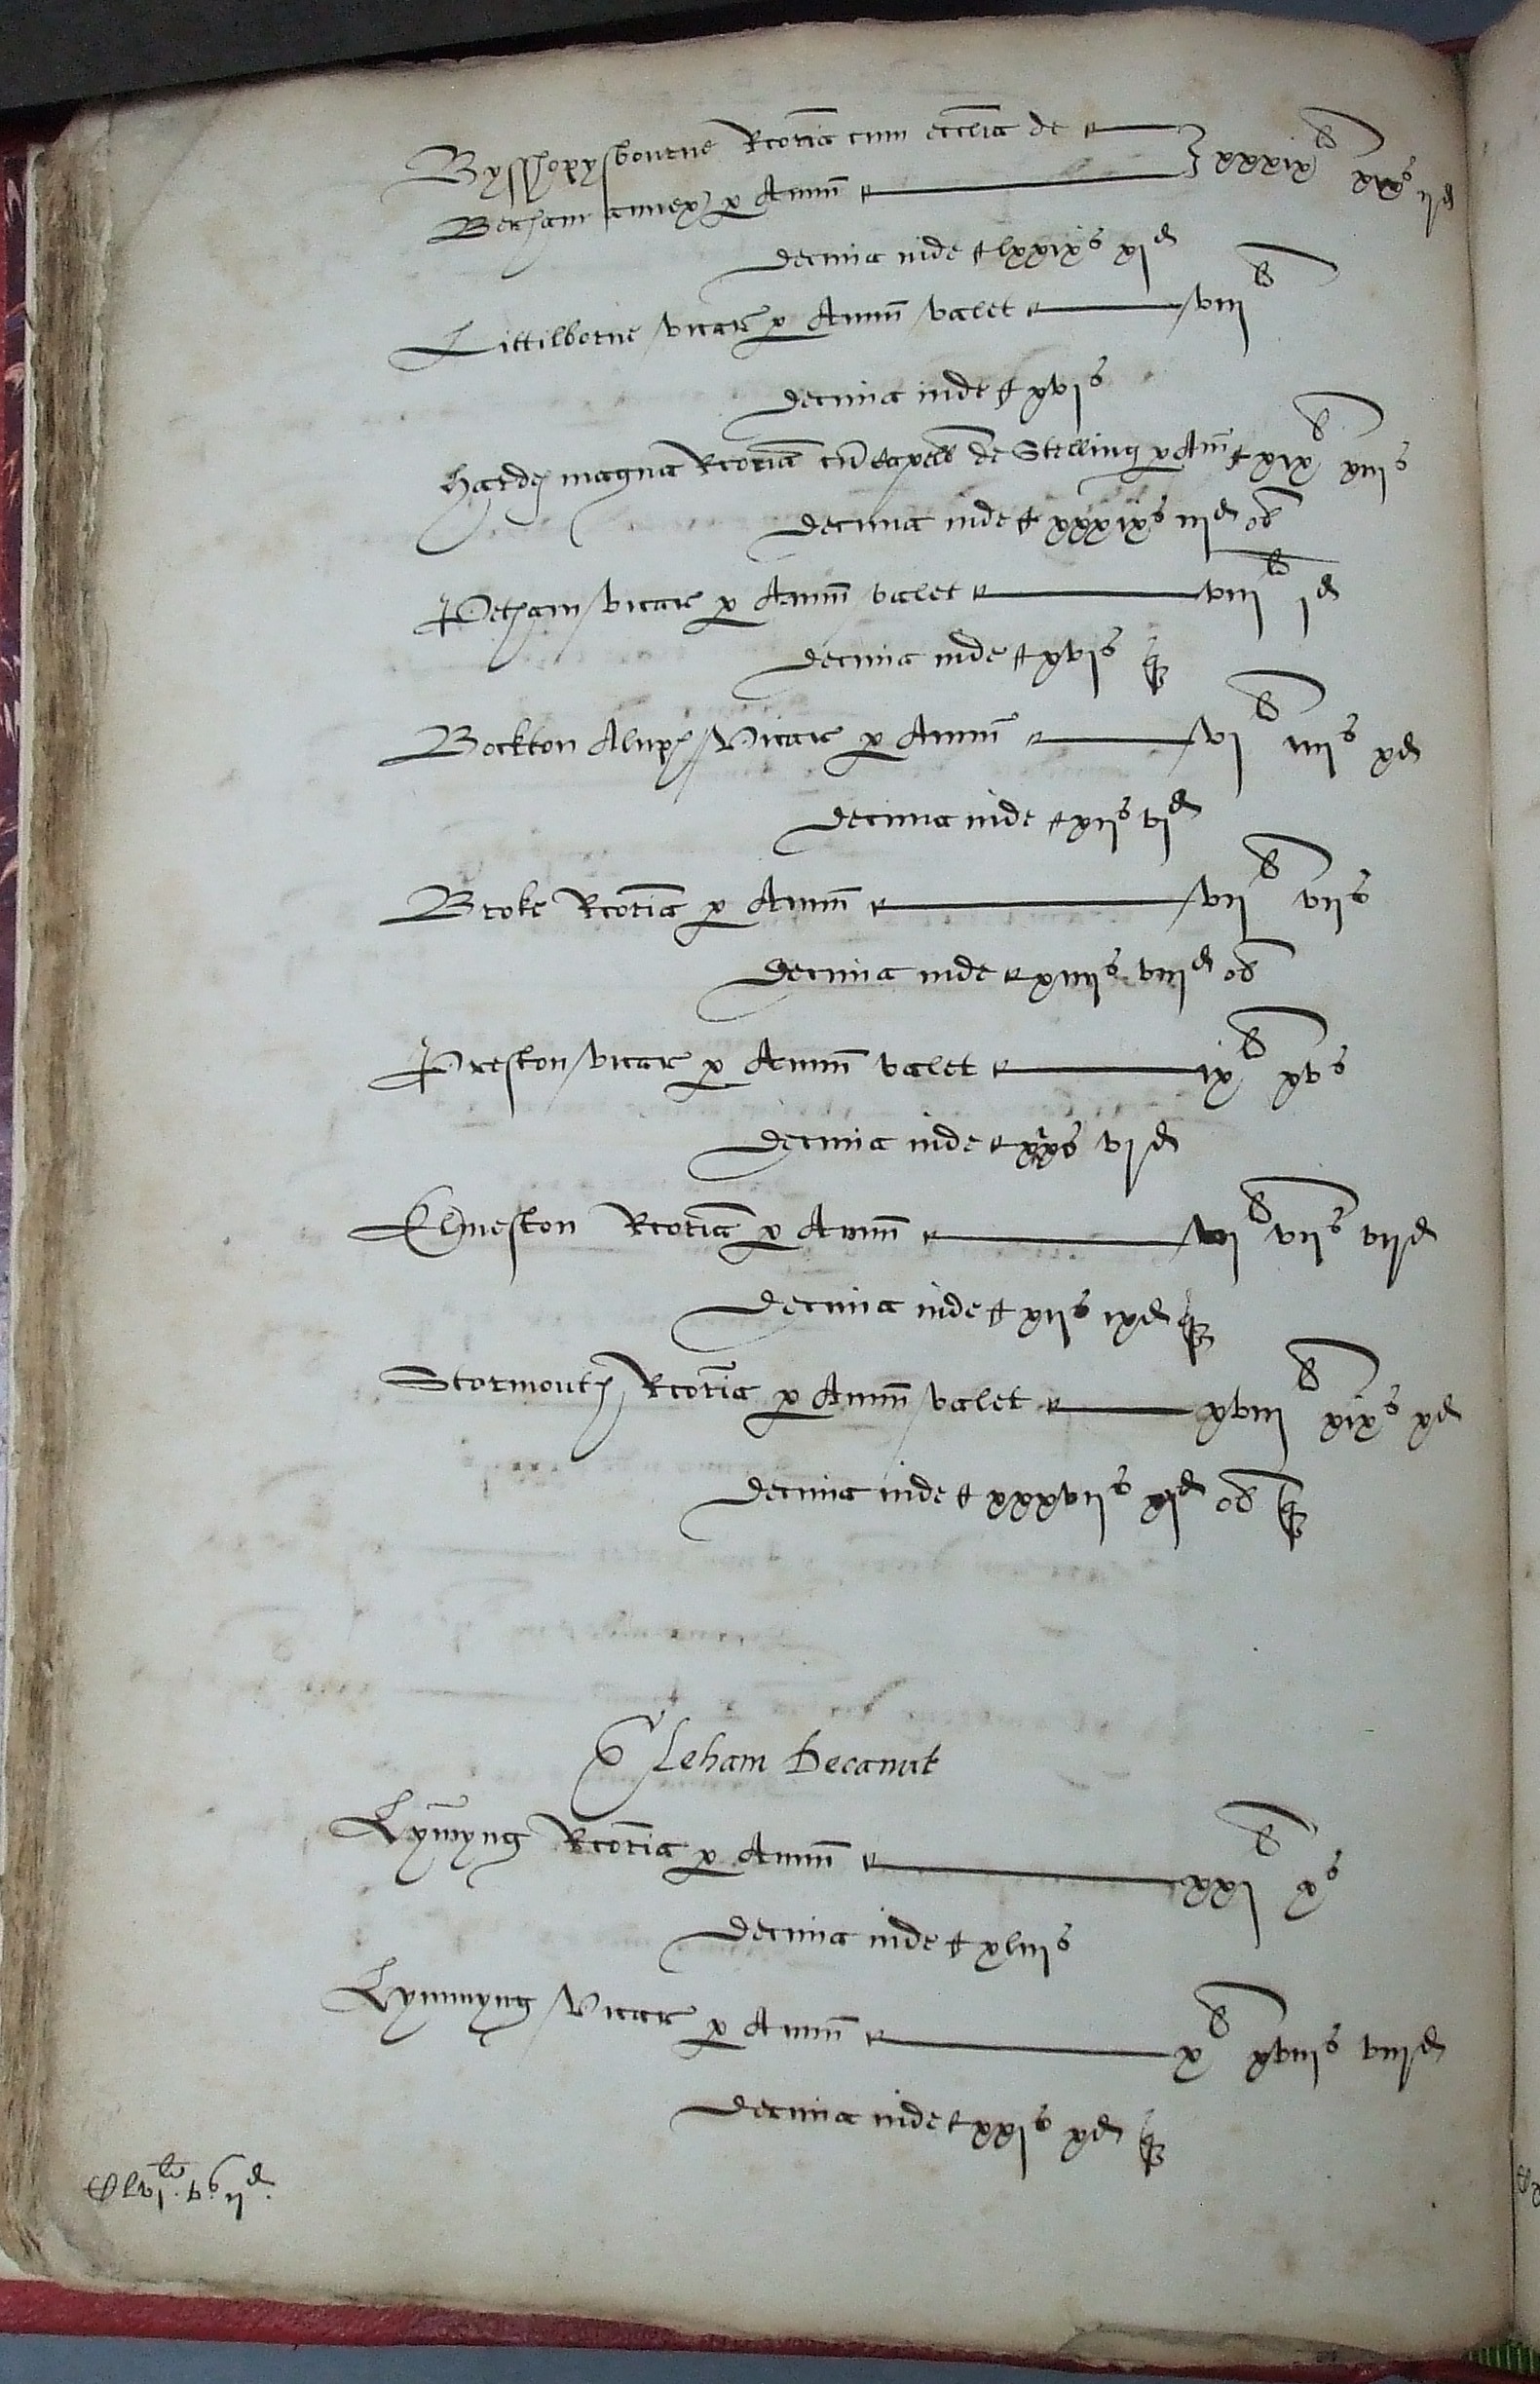 Bysshopysbourne Rcoria cum ecclia de
Berham annex p Annu xxxix li xix s ii d
Decima inde lxxix s xi d
Littilborne vicar p Annu valet viii li
Decima inde xvi s
Hardes magna Rcoria cu capell de Stelling p Anu xix li xiii s
Decima inde xxxix s iii d ob
Petham vicar p Annu valet viii li i d
Decima inde xvi s q
Bockton Aluph Vicar p Annu vi li iiii s x d
Decima inde xii s vi d
Broke Rcoria p Annu vii li vii s
Decima inde xiiii s viii d ob
Preston vicar p Annu valet ix li xv s
Decima inde xix s vi d
Elmeston Rcoria p Annu vi li vii s vii d
Decima inde xii s ix d q
Stormouth Rcoria p Annu valet xviii li xix s x d
Decima inde xxxvii s xi d ob q
Eleham Decanat
Lymyng Rcoria p Annu xxi li x s
Decima inde xliii s
Lymmyng Vicar p Annu x li xviii s viii d
Decima inde xxi s x d q
lvi li v s ii d